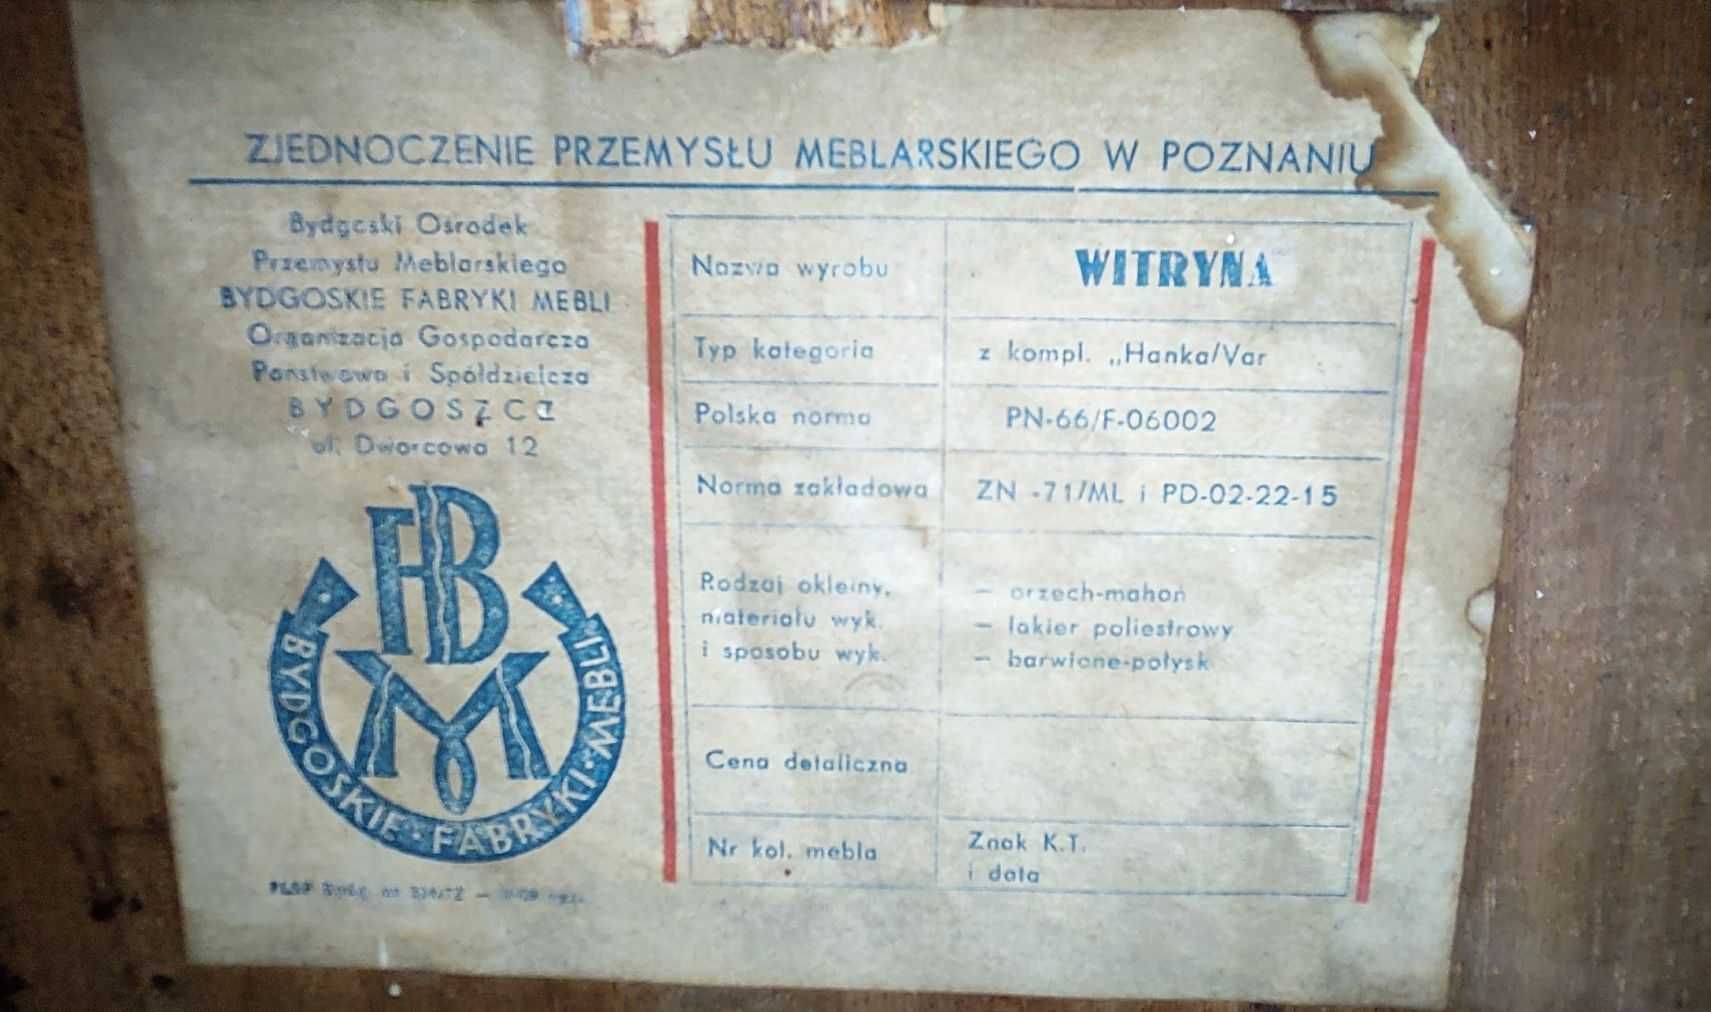 ZJEDNOCZENIE PRZEMYSŁU MEBLARSKIEGO W POZNANIU
Bydgoski Ośrodek
Przemysłu Meblarskiego
BYDGOSKIE FABRYKI MEBLI
Organizacja Gospodarcza
Państwowo i Spółdzielcza
BYDGOSZCZ
ul. Dworcowa 12
HBM
BYDGOSKIE · FABRYKI · MEBLI
Nazwa wyrobu WITRYNA
Typ kategoria z kompl. „Hanka/Var
Polska norma PN-66/F-06002
Norma zakładowa ZN -71/ML i PD-02-22-15
Rodzaj okleiny, – orzech-mahoń
materiału wyk. – lakier poliestrowy
i sposobu wyk. – barwione-połysk
Cena detaliczna
Nr kol. mebla Znak K.T.
i data